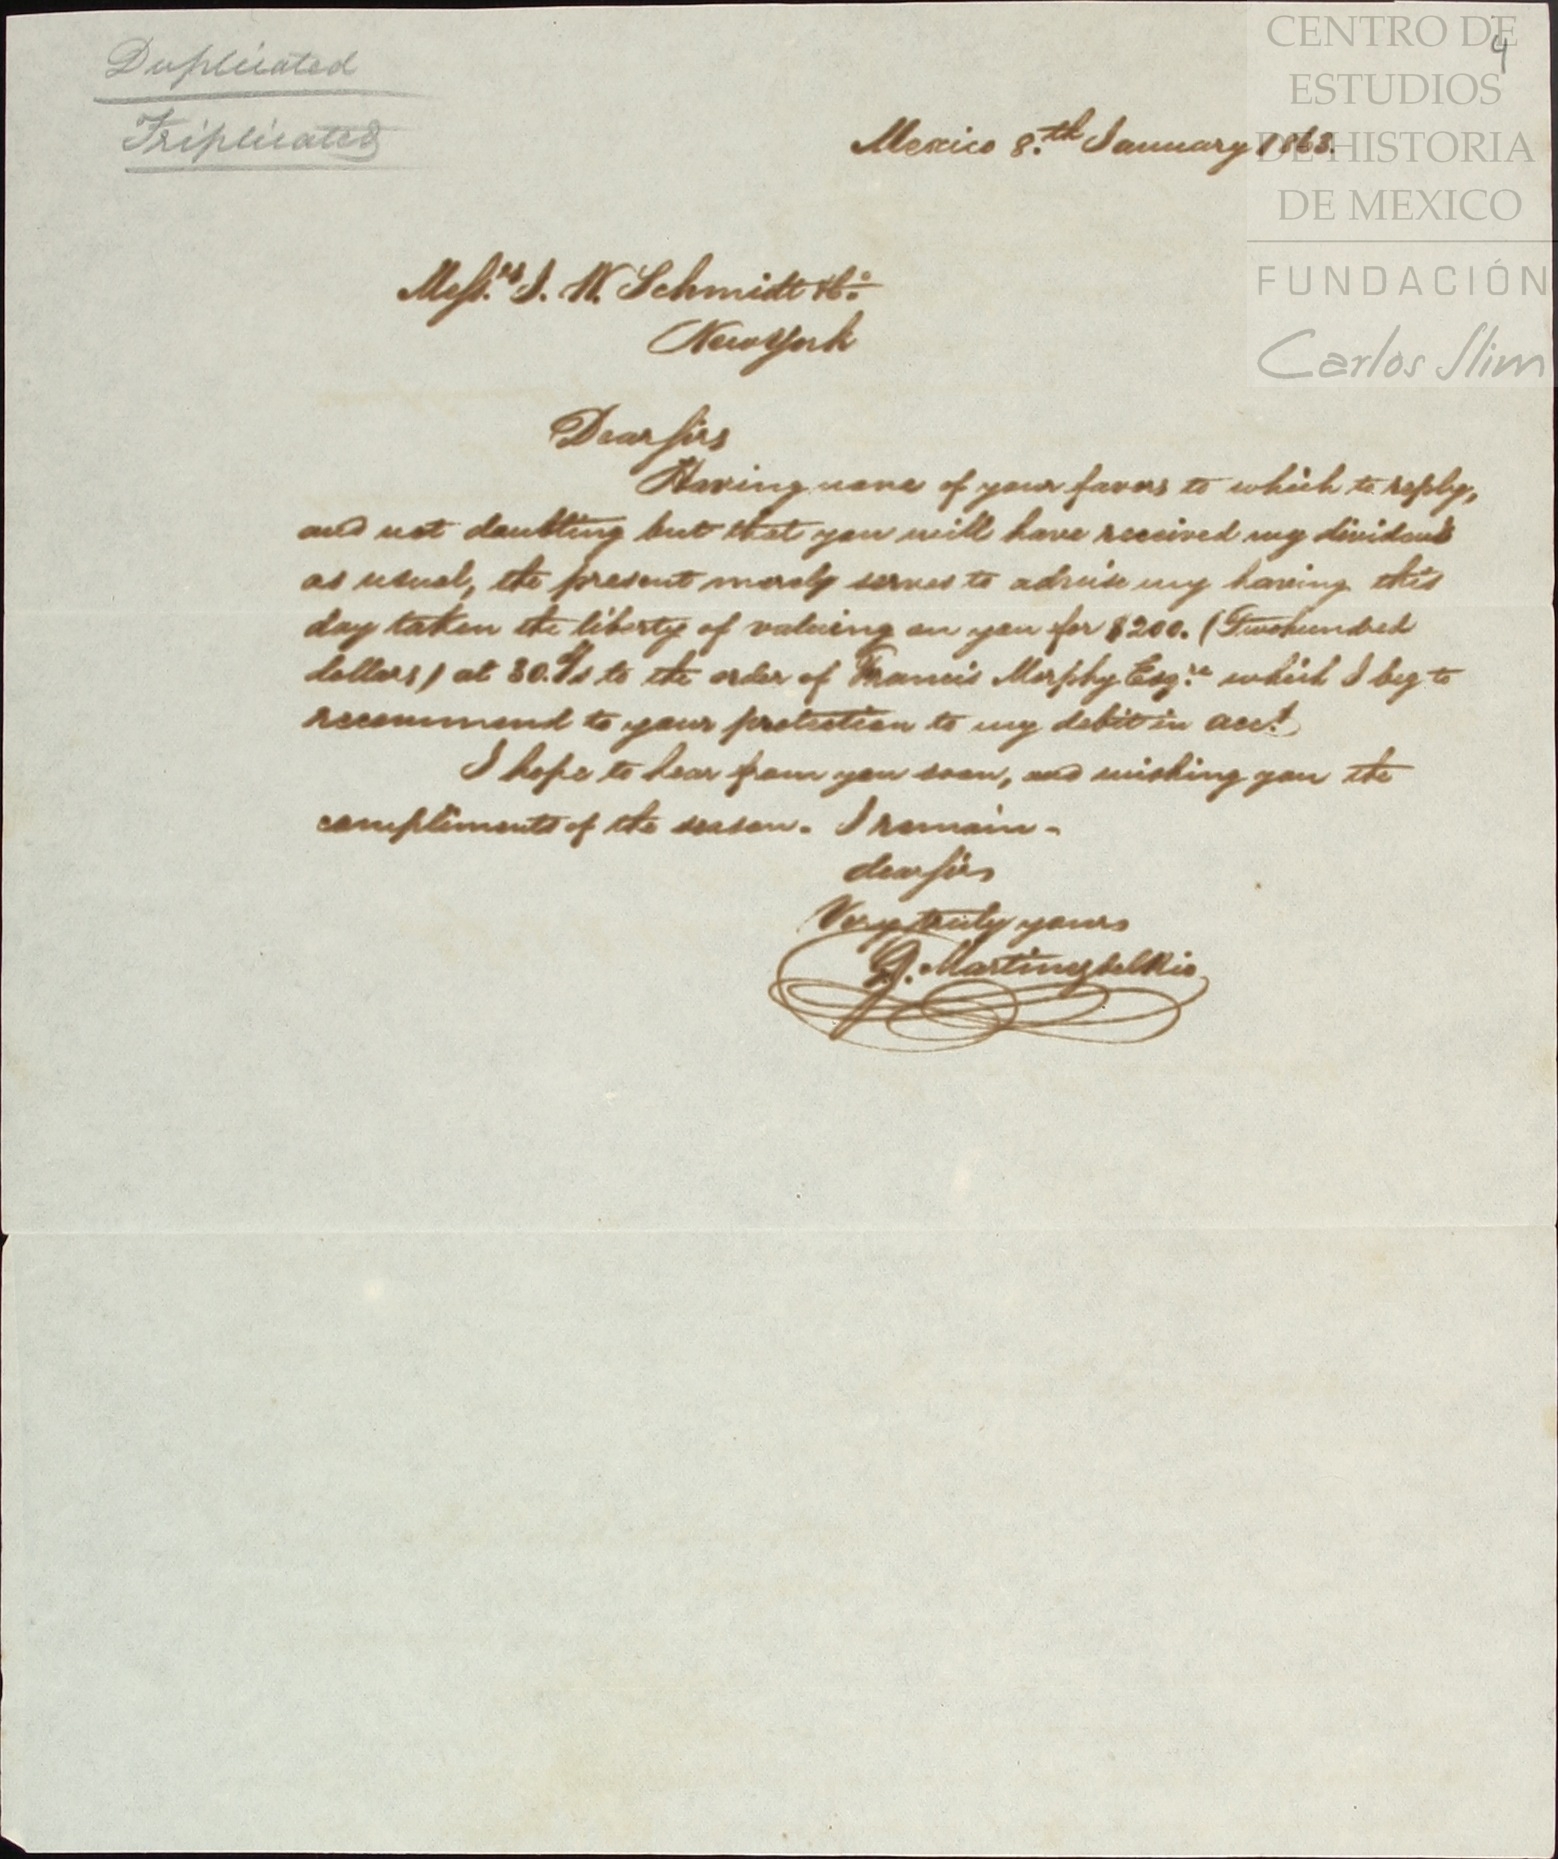 Duplicated
Triplicated
4
CENTRO DE
ESTUDIOS
DE HISTORIA
DE MEXICO
FUNDACIÓN
Carlos Slim
Mexico 8.th January 1863.
Mess.rs J. W. Schmidt & Co.
New York
Dear sirs
Having none of your favors to which to reply,
and not doubting but that you will have received my dividend
as usual, the present merely serves to advise my having this
day taken the liberty of valuing on you for $200. (Twohundred
dollars) at 30. d/s to the order of Francis Morphy Esq.re which I beg to
recommend to your protection to my debit in acc.t
I hope to hear from you soon, and wishing you the
compliments of the season. I remain -
dear sirs
Very truly yours
G. Martinez del Rio